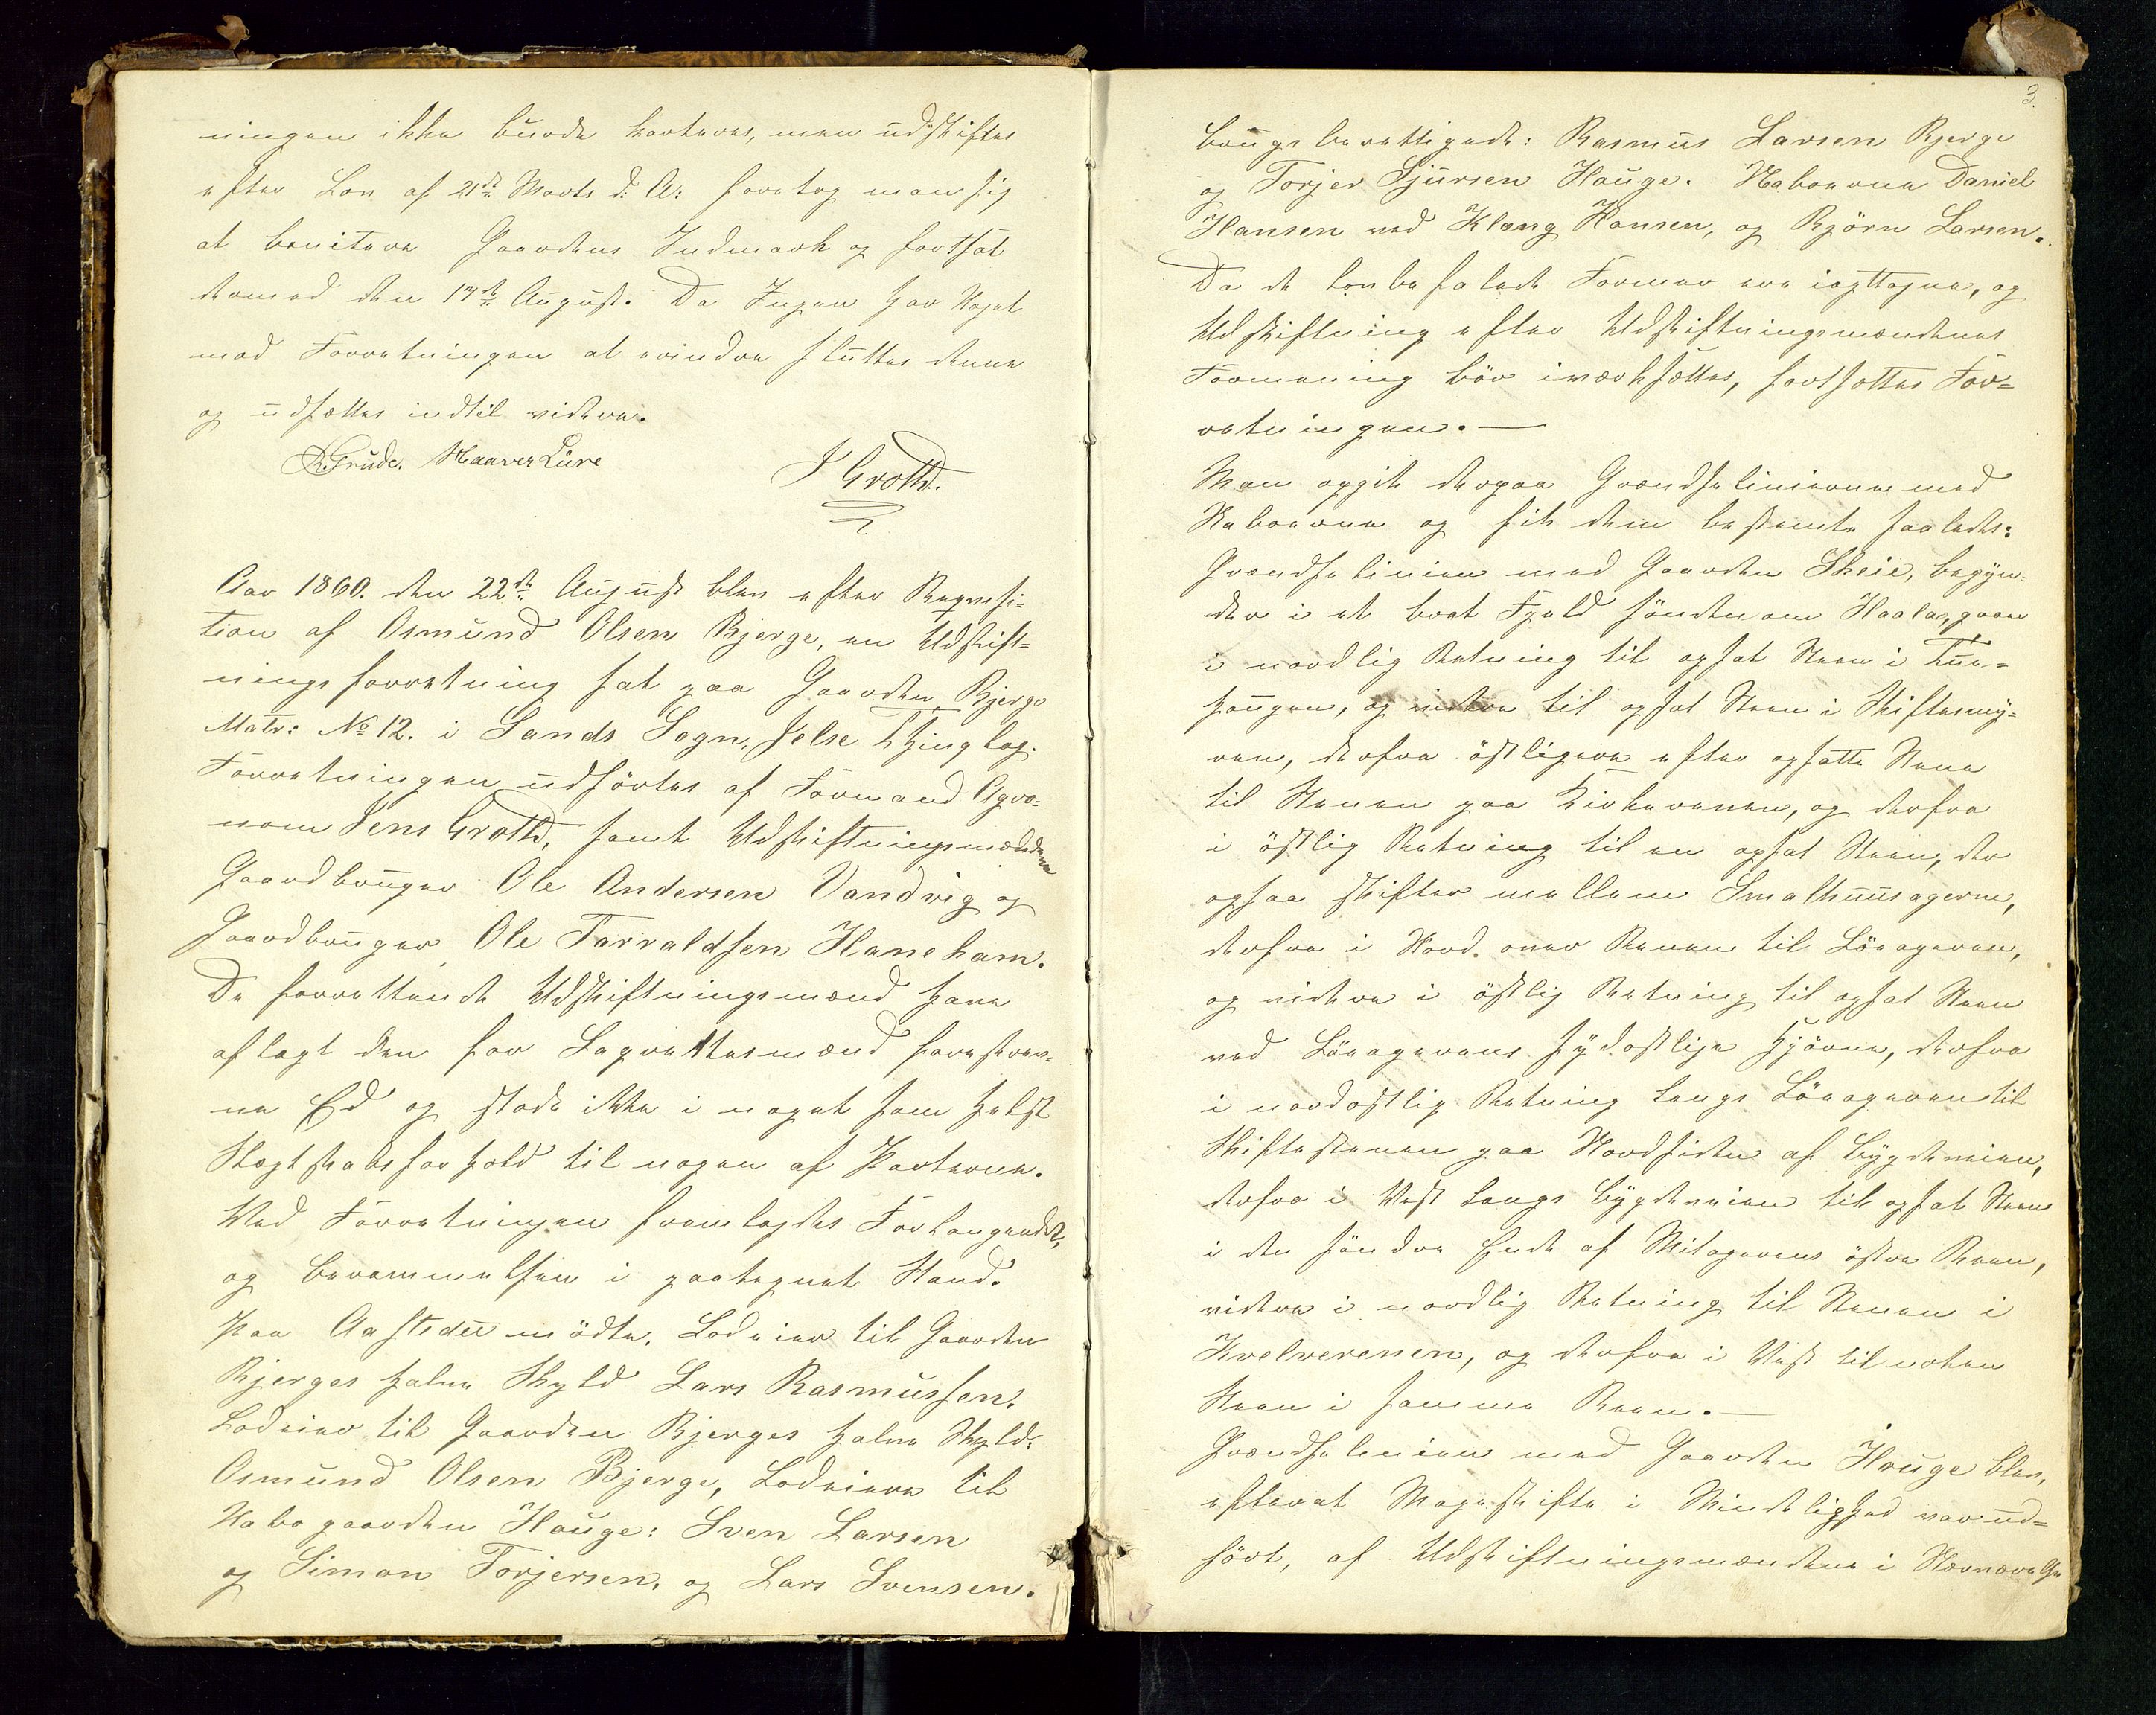 ningen ikke burde karteres, men udskiftes
efter Lov af 21de Marts d: A: foretog man sig
at bonitere Gaardens Indmark og fortsat
dermed den 17de August. Da Ingen har Noget
med Forretningen at erindre sluttes denne
og udsættes indtil videre.
R. Grude. Haaver Lure
J Groth.
Aar 1860. den 22de August blev efter Reqvisi-
tion af Osmund Olsen Bjerge, en Udskift-
ningsforretning sat paa Gaarden Bjerge
Matr: No 12. i Sands Sogn, Jelse Thinglag.
Forretningen udførtes af Formand Agro-
nom Jens Groth, samt Udskiftningsmændene
Gaardbruger Ole Andersen Vandvig og
Gaardbruger Ole Tarraldsen Haneham.
De forrettende Udskiftningsmænd have
aflagt den for Lagrettesmænd foreskrev-
ne Ed og stode ikke i noget som helst
Slægtskabsforhold til nogen af Parterne.
Ved Forretningen fremlagdes Forlangendet,
og Berammelsen i paategnet Stand.
Paa Aastedet mødte. Lodeier til Gaarden
Bjerges halve Skyld Lars Rasmussen.
Lodeier til Gaarden Bjerges halve Skyld:
Osmund Olsen Bjerge, Lodeiere til
Nabogaarden Hauge: Sven Larsen
og Simon Torjersen. og Lars Svensen.
3.
brugsberettigede: Rasmus Larsen Bjerge
og Torjer Sjursen Hauge. Naboerne Daniel
Hansen ved Klæng Hansen, og Bjørn Larsen.
Da de lovbefalede Former ere iagttagne, og
Udskiftning efter Udskiftningsmændenes
Formening bør iværksættes, fortsattes For-
retningen. —
Man opgik derpaa Grændselinierne med
Naboerne og fik dem bestemte saaledes:
Grændselinien med Gaarden Skeie, begyn-
der i et brat Fjeld søndenom Haalar, gaar
i nordlig Retning til opsat Steen i Tue-
haugen, og videre til opsat Steen i Skiftesmy-
ren, derfra østligere efter opsatte Stene
til Stenen paa Kirkerenen, og derfra
i østlig Retning til en opsat Steen, der
ogsaa skifter mellem Smalhuusagerne,
derfra i Nord. over Renen til Löeageren,
og videre i østlig Retning til opsat Steen
ved Löeagerens sydostlige Hjørne, derfra
i nordostlig Retning langs Löeageren til
Skiftestenen paa Nordsiden af Bygdeveien,
derfra i Vest langs Bygdeveien til opsat Steen
i den søndre Ende af Mitagerens østre Reen,
videre i nordlig Retning til Stenen i
Kvelverenen, og derfra i Vest til noken
Steen i samme Reen. —
Grændselinien med Gaarden Hauge blev,
efterat Mageskifte i Mindelighed var ud-
ført, af Udskiftningsmændene i Nærvær af